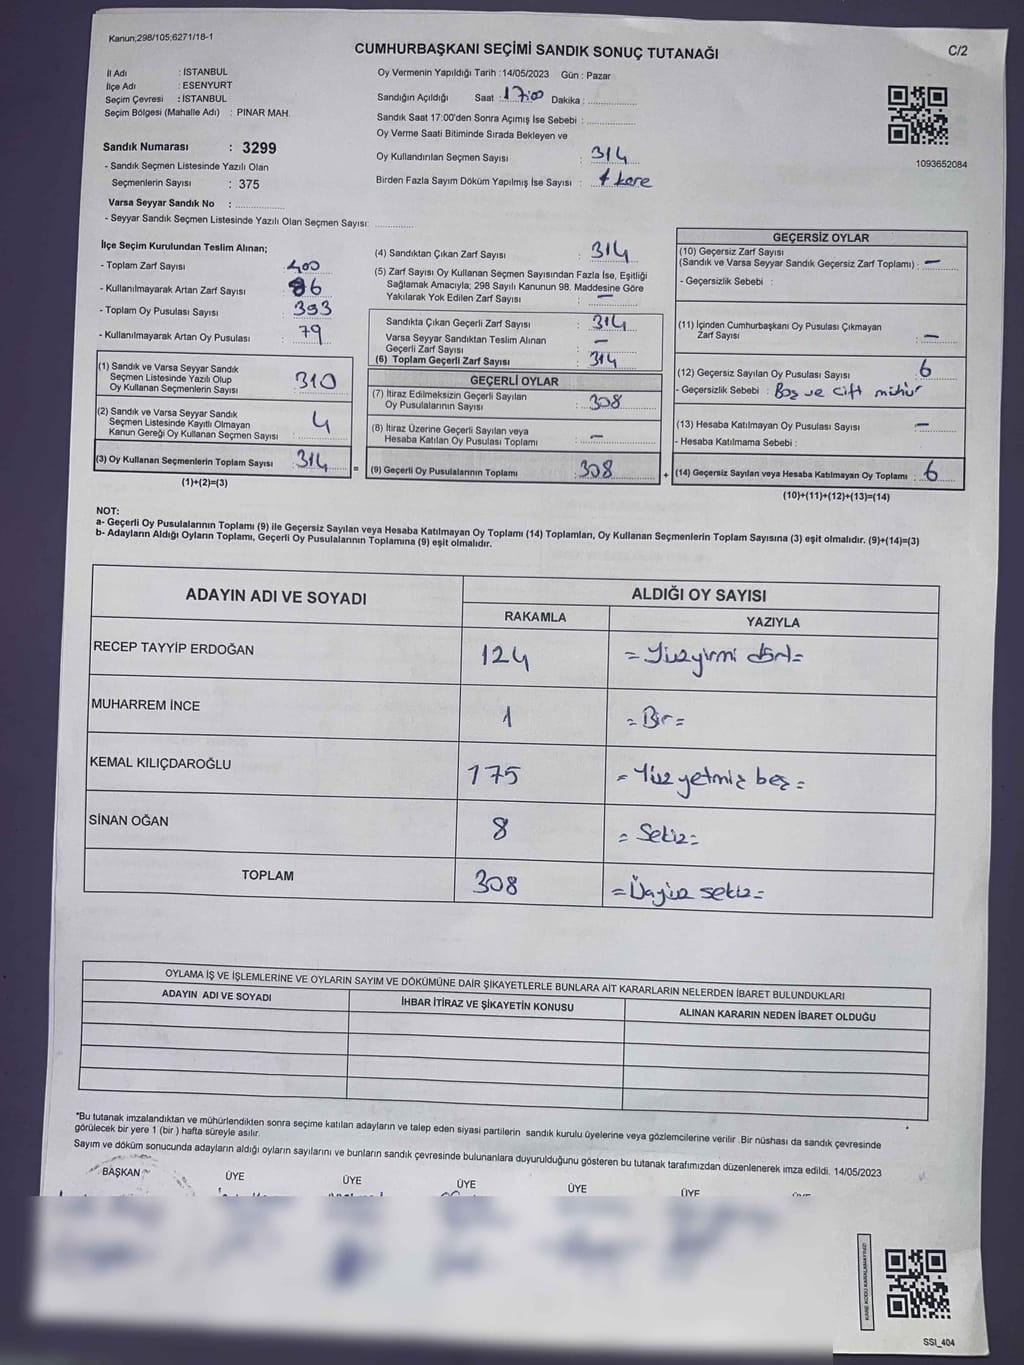 Kanun;298/105;6271/18-1
CUMHURBAŞKANI SEÇİMİ SANDIK SONUÇ TUTANAĞI
C/2
İl Adı : İSTANBUL
İlçe Adı : ESENYURT
Seçim Çevresi : İSTANBUL
Seçim Bölgesi (Mahalle Adı) : PINAR MAH.
Sandık Numarası : 3299
- Sandık Seçmen Listesinde Yazılı Olan
Seçmenlerin Sayısı : 375
Varsa Seyyar Sandık No : ..............
- Seyyar Sandık Seçmen Listesinde Yazılı Olan Seçmen Sayısı: ..............
Oy Vermenin Yapıldığı Tarih : 14/05/2023 Gün : Pazar
Sandığın Açıldığı Saat : 17:00 Dakika : ..............
Sandık Saat 17:00'den Sonra Açımış İse Sebebi : ..............
Oy Verme Saati Bitiminde Sırada Bekleyen ve
Oy Kullandırılan Seçmen Sayısı : 314
Birden Fazla Sayım Döküm Yapılmış İse Sayısı : 1 kere
1093652084
İlçe Seçim Kurulundan Teslim Alınan;
- Toplam Zarf Sayısı : 400
- Kullanılmayarak Artan Zarf Sayısı : 86
- Toplam Oy Pusulası Sayısı : 393
- Kullanılmayarak Artan Oy Pusulası : 79
(1) Sandık ve Varsa Seyyar Sandık
Seçmen Listesinde Yazılı Olup
Oy Kullanan Seçmenlerin Sayısı : 310
(2) Sandık ve Varsa Seyyar Sandık
Seçmen Listesinde Kayıtlı Olmayan
Kanun Gereği Oy Kullanan Seçmen Sayısı : 4
(3) Oy Kullanan Seçmenlerin Toplam Sayısı : 314
(1)+(2)=(3)
=
(4) Sandıktan Çıkan Zarf Sayısı : 314
(5) Zarf Sayısı Oy Kullanan Seçmen Sayısından Fazla İse, Eşitliği
Sağlamak Amacıyla; 298 Sayılı Kanunun 98. Maddesine Göre
Yakılarak Yok Edilen Zarf Sayısı : —
Sandıkta Çıkan Geçerli Zarf Sayısı : 314
Varsa Seyyar Sandıktan Teslim Alınan
Geçerli Zarf Sayısı : —
(6) Toplam Geçerli Zarf Sayısı : 314
GEÇERLİ OYLAR
(7) İtiraz Edilmeksizin Geçerli Sayılan
Oy Pusulalarının Sayısı : 308
(8) İtiraz Üzerine Geçerli Sayılan veya
Hesaba Katılan Oy Pusulası Toplamı : —
(9) Geçerli Oy Pusulalarının Toplamı : 308
+
GEÇERSİZ OYLAR
(10) Geçersiz Zarf Sayısı
(Sandık ve Varsa Seyyar Sandık Geçersiz Zarf Toplamı) : —
- Geçersizlik Sebebi :
(11) İçinden Cumhurbaşkanı Oy Pusulası Çıkmayan
Zarf Sayısı : —
(12) Geçersiz Sayılan Oy Pusulası Sayısı : 6
- Geçersizlik Sebebi : Boş ve çift mühür
(13) Hesaba Katılmayan Oy Pusulası Sayısı : —
- Hesaba Katılmama Sebebi :
(14) Geçersiz Sayılan veya Hesaba Katılmayan Oy Toplamı : 6
(10)+(11)+(12)+(13)=(14)
NOT:
a- Geçerli Oy Pusulalarının Toplamı (9) ile Geçersiz Sayılan veya Hesaba Katılmayan Oy Toplamı (14) Toplamları, Oy Kullanan Seçmenlerin Toplam Sayısına (3) eşit olmalıdır. (9)+(14)=(3)
b- Adayların Aldığı Oyların Toplamı, Geçerli Oy Pusulalarının Toplamına (9) eşit olmalıdır.
ADAYIN ADI VE SOYADI
ALDIĞI OY SAYISI
RAKAMLA YAZIYLA
RECEP TAYYİP ERDOĞAN 124 =Yüzyirmi dört=
MUHARREM İNCE 1 =Bir=
KEMAL KILIÇDAROĞLU 175 =Yüz yetmiş beş=
SİNAN OĞAN 8 =Sekiz=
TOPLAM 308 =Üçyüz sekiz=
OYLAMA İŞ VE İŞLEMLERİNE VE OYLARIN SAYIM VE DÖKÜMÜNE DAİR ŞİKAYETLERLE BUNLARA AİT KARARLARIN NELERDEN İBARET BULUNDUKLARI
ADAYIN ADI VE SOYADI İHBAR İTİRAZ VE ŞİKAYETİN KONUSU ALINAN KARARIN NEDEN İBARET OLDUĞU
*Bu tutanak imzalandıktan ve mühürlendikten sonra seçime katılan adayların ve talep eden siyasi partilerin sandık kurulu üyelerine veya gözlemcilerine verilir .Bir nüshası da sandık çevresinde
görülecek bir yere 1 (bir ) hafta süreyle asılır.
Sayım ve döküm sonucunda adayların aldığı oyların sayılarını ve bunların sandık çevresinde bulunanlara duyurulduğunu gösteren bu tutanak tarafımızdan düzenlenerek imza edildi. 14/05/2023
BAŞKAN ÜYE ÜYE ÜYE ÜYE ÜYE
SSI_404